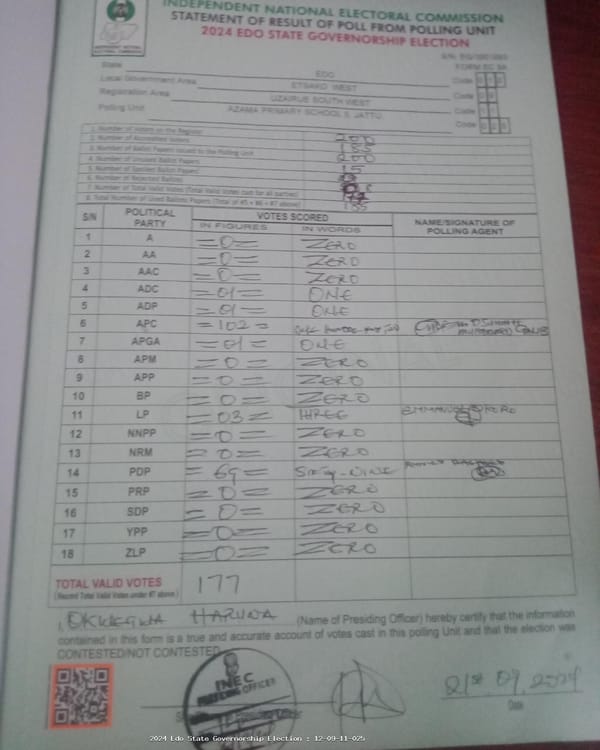 INDEPENDENT NATIONAL ELECTORAL COMMISSION
STATEMENT OF RESULT OF POLL FROM POLLING UNIT
2024 EDO STATE GOVERNORSHIP ELECTION
FORM EC 8A
State EDO Code
Local Government Area ETSAKO WEST Code
Registration Area UZAIRUE SOUTH WEST Code
Polling Unit AZAMA PRIMARY SCHOOL II, JATTU Code
1. Number of Voters on the Register 200
2. Number of Accredited Voters 185
3. Number of Ballot Papers Issued to the Polling Unit 200
4. Number of Unused Ballot Papers 15
5. Number of Spoiled Ballot Papers
6. Number of Rejected Ballots 8
7. Number of Total Valid Votes (Total Valid Votes cast for all parties) 177
8. Total Number of Used Ballot Papers (Total of #5 + #6 + #7 above) 185
S/N POLITICAL PARTY VOTES SCORED NAME/SIGNATURE OF POLLING AGENT
IN FIGURES IN WORDS
1 A =0= ZERO
2 AA =0= ZERO
3 AAC =0= ZERO
4 ADC =01= ONE
5 ADP =01= ONE
6 APC =102=
7 APGA =01= ONE
8 APM =0= ZERO
9 APP =0= ZERO
10 BP =0= ZERO
11 LP =03= THREE
12 NNPP =0= ZERO
13 NRM =0= ZERO
14 PDP =69= SIXTY-NINE
15 PRP =0= ZERO
16 SDP =0= ZERO
17 YPP =0= ZERO
18 ZLP =0= ZERO
TOTAL VALID VOTES 177
(Record Total Valid Votes under #7 above)
I, HARUNA (Name of Presiding Officer) hereby certify that the information
contained in this form is a true and accurate account of votes cast in this polling Unit and that the election was
CONTESTED/NOT CONTESTED
INEC
PRESIDING OFFICER
21st.09.2024
Date
2024 Edo State Governorship Election : 12-09-11-025